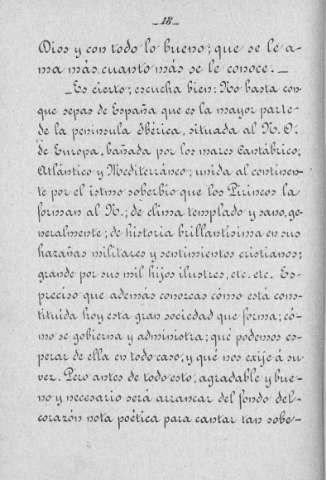 — 18 —
Dios y con todo lo bueno; que se le a-
ma más, cuanto más se le conoce. —
—Es cierto; escucha bien: No basta con
que sepas de España que es la mayor parte
de la península Ibérica, situada al N. O.
de Europa, bañada por los mares Cantábrico,
Atlántico y Mediterráneo; unida al continen-
te por el istmo soberbio que los Pirineos la
forman al N.; de clima templado y sano, ge-
neralmente; de historia brillantísima en sus
hazañas militares y sentimientos cristianos;
grande por sus mil hijos ilustres, etc. etc. Es
preciso que además conozcas cómo está cons-
tituída hoy esta gran sociedad que forma; có-
mo se gobierna y administra; qué podemos es-
perar de ella en todo caso, y qué nos exije á su
vez. Pero antes de todo esto, agradable y bue-
no y necesario será arrancar del fondo del
corazón nota poética para cantar tan sobe-